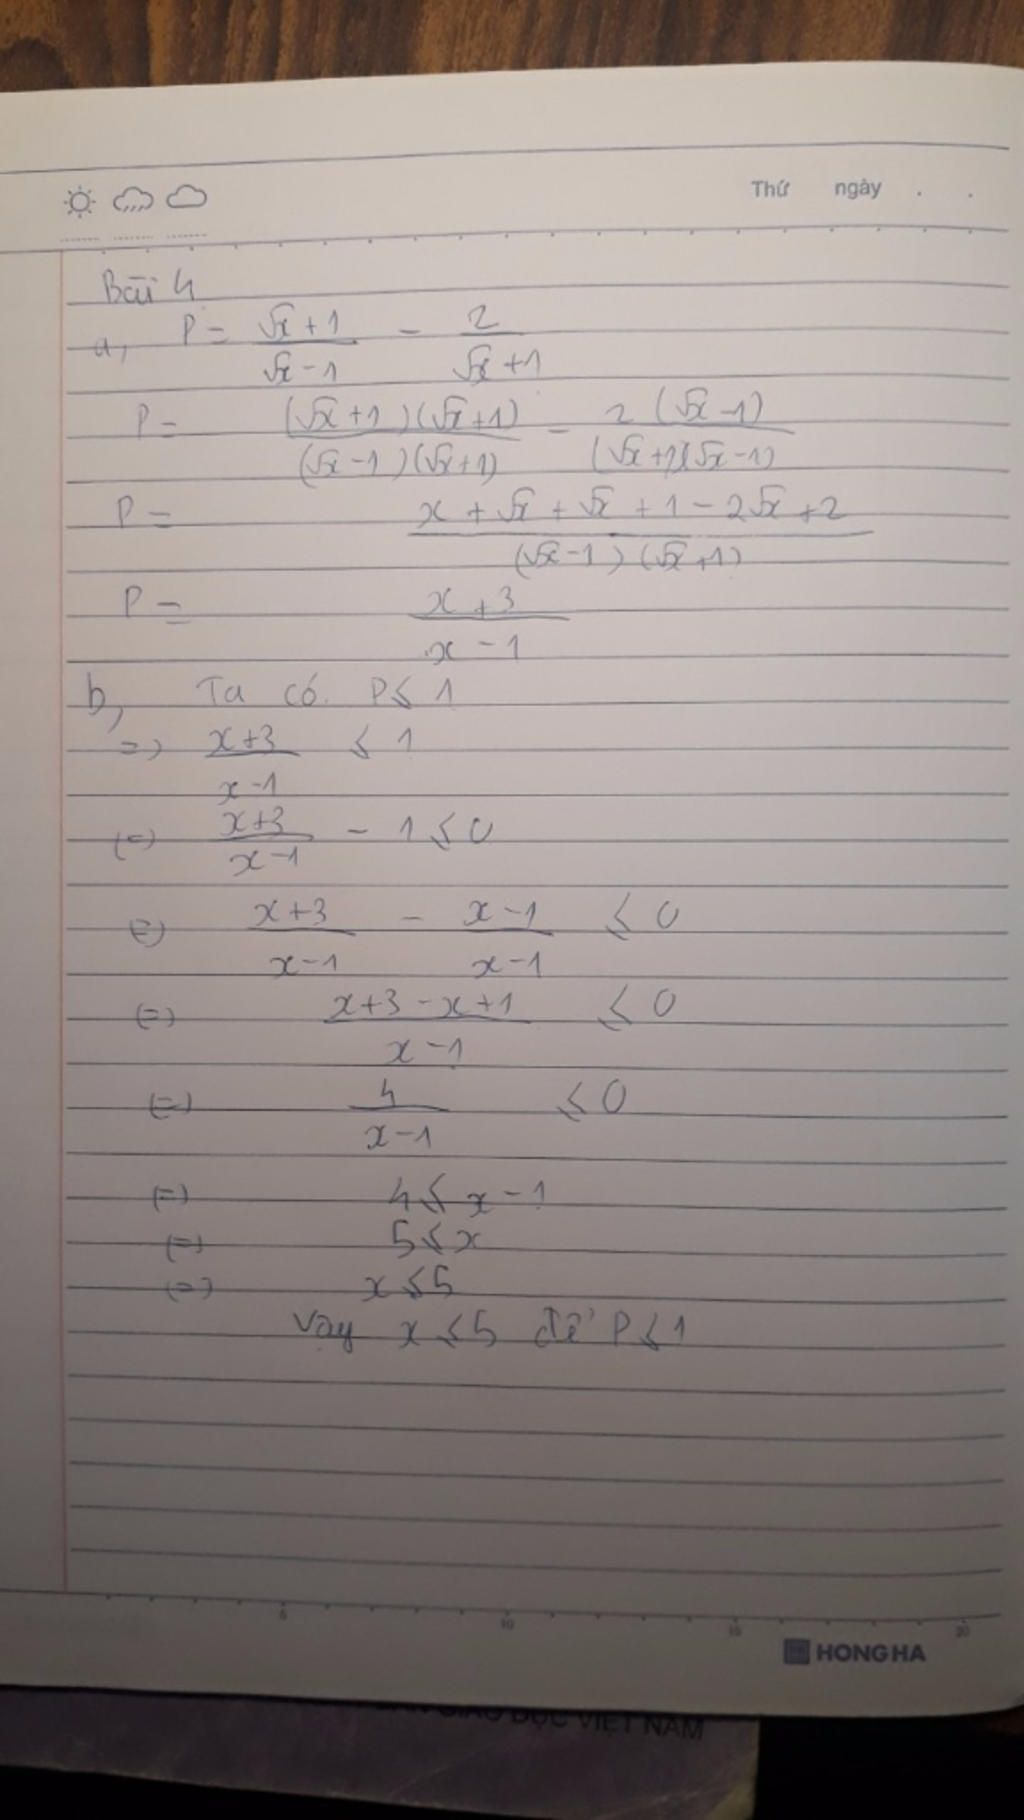 Thứ ngày . .
Bài 4
a, P = (√x + 1)/(√x - 1) - 2/(√x + 1)
P = ((√x + 1)(√x + 1))/((√x - 1)(√x + 1)) - (2(√x - 1))/((√x + 1)(√x - 1))
P = (x + √x + √x + 1 - 2√x + 2)/((√x - 1)(√x + 1))
P = (x + 3)/(x - 1)
b, Ta có P ≤ 1
=> (x+3)/(x-1) ≤ 1
(=) (x+3)/(x-1) - 1 ≤ 0
(=) (x+3)/(x-1) - (x-1)/(x-1) ≤ 0
(=) (x+3-x+1)/(x-1) ≤ 0
(=) 4/(x-1) ≤ 0
(=) 4 ≤ x - 1
(=) 5 ≤ x
(=) x ≤ 5
Vậy x ≤ 5 để P ≤ 1
5 10 15 20
HONG HA
GIÁO DỤC VIỆT NAM